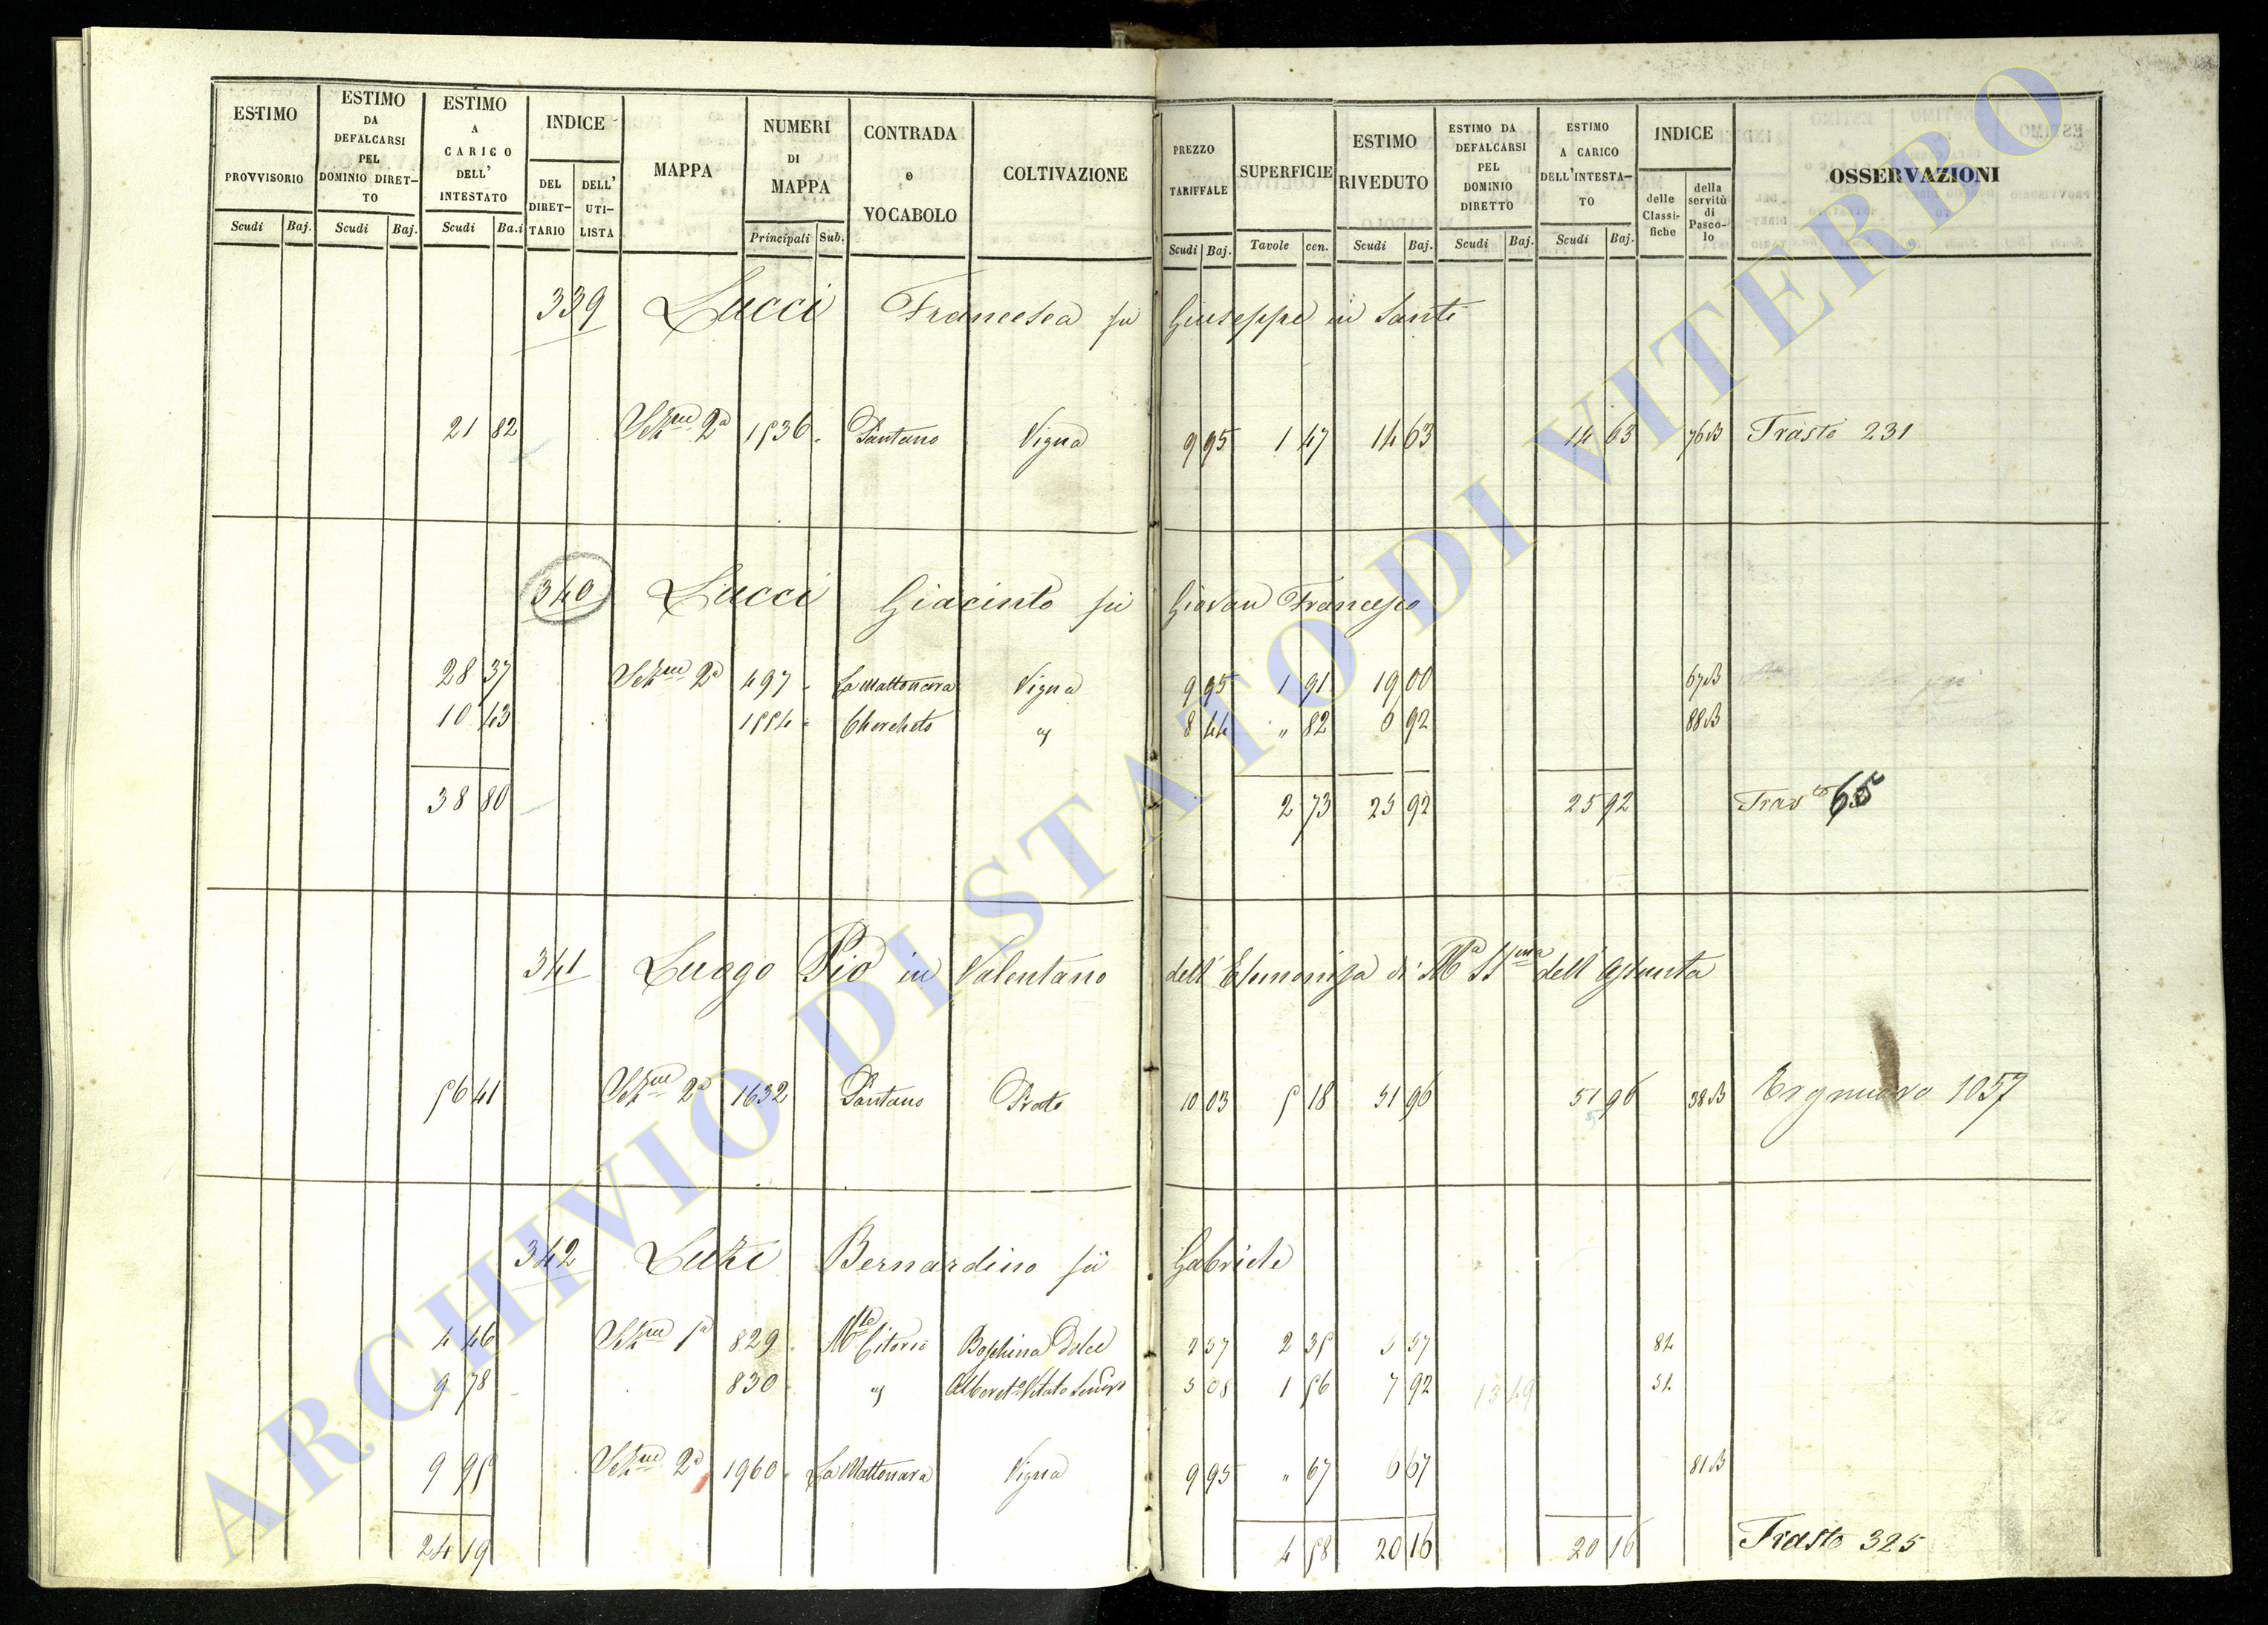 ESTIMO PROVVISORIO Scudi Baj.
ESTIMO DA DEFALCARSI PEL DOMINIO DIRET-TO Scudi Baj.
ESTIMO A CARICO DELL' INTESTATO Scudi Ba.i
INDICE DEL DIRET-TARIO DELL' UTI-LISTA
MAPPA
NUMERI DI MAPPA Principali Sub.
CONTRADA e VOCABOLO
COLTIVAZIONE
PREZZO TARIFFALE Scudi Baj.
SUPERFICIE Tavole cen.
ESTIMO RIVEDUTO Scudi Baj.
ESTIMO DA DEFALCARSI PEL DOMINIO DIRETTO Scudi Baj.
ESTIMO A CARICO DELL'INTESTA-TO Scudi Baj.
INDICE delle Classi-fiche della servitù di Pasco-lo
OSSERVAZIONI
339 Lucci Francesca fu Giuseppe in Santi
21 82 Sezne 2a 1536 Pantano Vigna 9 95 1 47 14 63 14 63 76B Trasto 231
340 Lucci Giacinto fu Giovan Francesco
28 37 Sezne 2a 497 La Mattonara Vigna 9 95 1 91 19 00 67B
10 43 1554 Chercheto " 8 44 " 82 6 92 88B
38 80 2 73 25 92 25 92 Trasto 65
341 Luogo Pio in Valentano dell'Elemonissa di Ma SSma dell'Assunta
56 41 Sezne 2a 1632 Pantano Prato 10 03 5 18 51 96 51 96 38B 1057
342 Luzi Bernardino fu Gabriele
4 46 Sezne 1a 829 Mte Citorio Boschina Dolce 2 37 2 35 5 57 82
9 78 830 " 5 08 1 56 7 92 13 49
9 95 Sezne 2a 1960 La Mattonara Vigna 9 95 " 67 6 67 81B
24 19 4 58 20 16 20 16 Trasto 325
ARCHIVIO DI STATO DI VITERBO